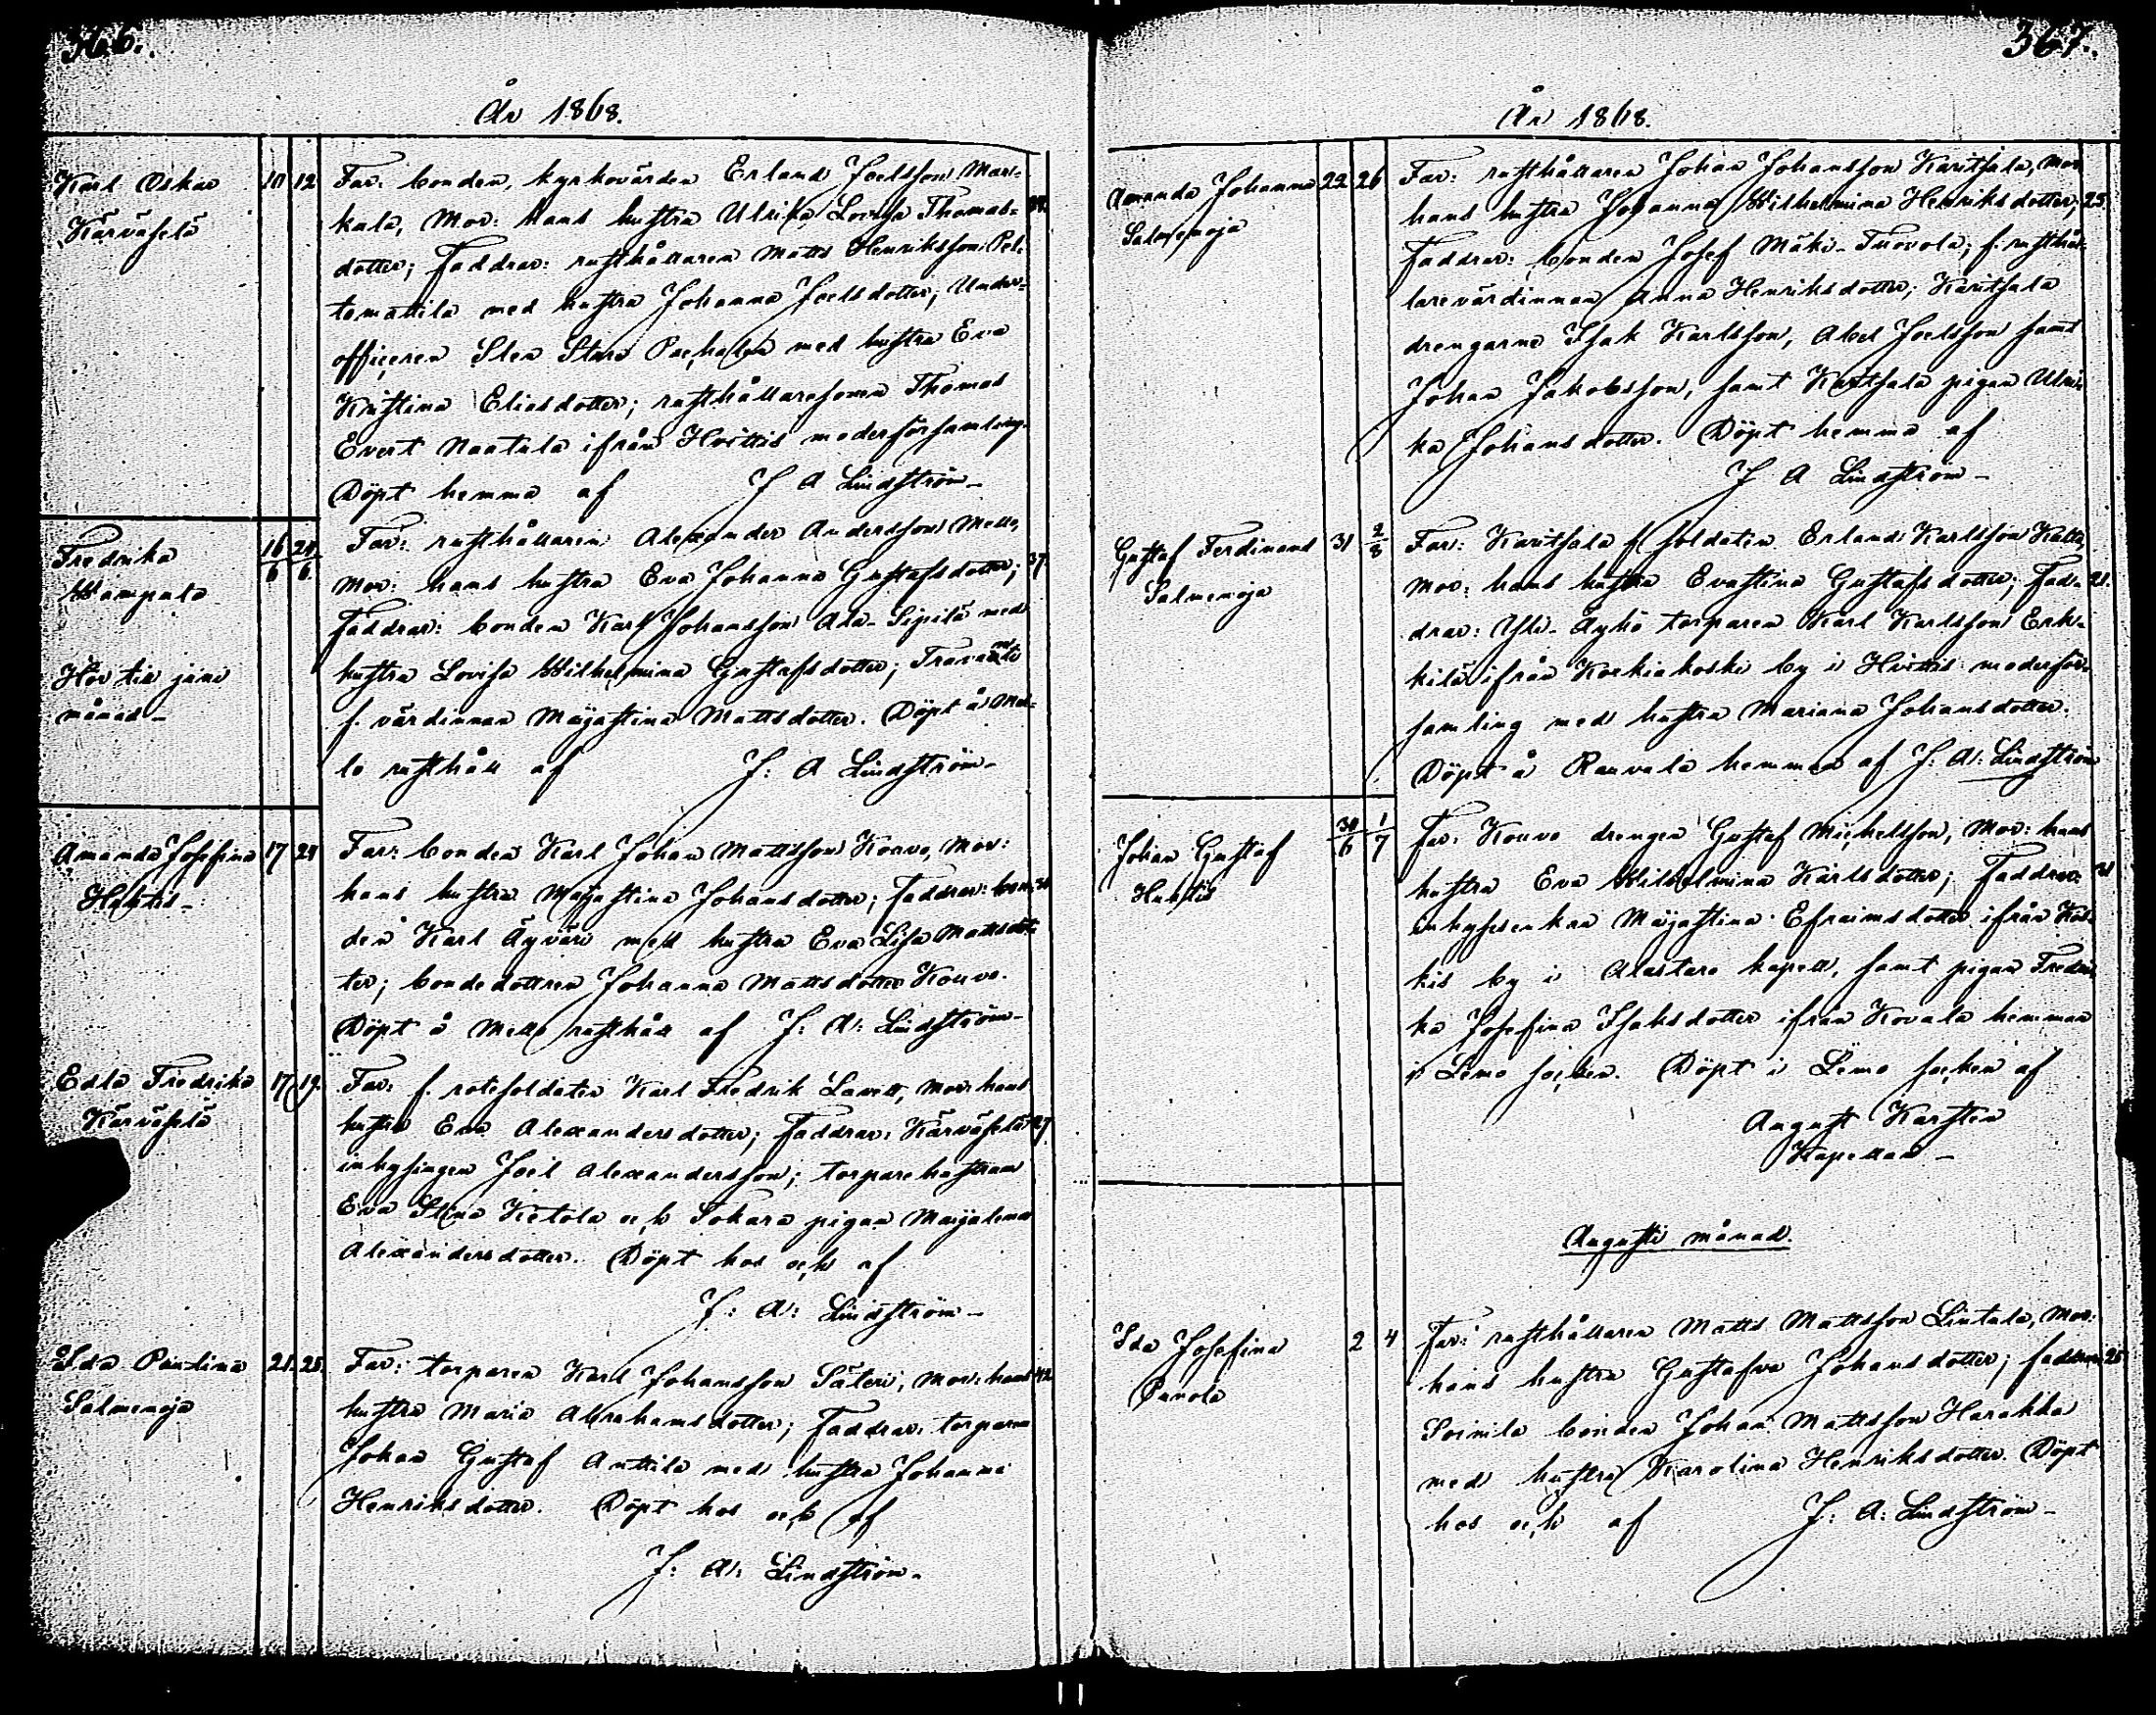 366.
År 1868.
Karl Oskar 10 12
Kärväselä
Far: bonden, kyrkovärden Erland Joelsson Mar-
kula, Mor: hans hustru Ulrika Lovisa Thomas-
dotter; Faddrar: rusthållaren Matts Henriksson Pel-
tomattila med hustru Johanna Joelsdotter, Under-
officeren Sten Stare med hustru Eva
Kristina Eliasdotter; rusthållaresonen Thomas
Evert Naatula ifrån Hvittis moderförsamling.
Döpt hemma af J A Lindström
Fredrika 16/6 24/6
Wampula
Hör till juni
månad
Far: rusthållaren Alexander Andersson Mello,
Mor: hans hustru Eva Johanna Gustafsdotter; 37.
Faddrar: bonden Karl Johansson Ala-Sipilä med
hustru Lovisa Wilhelmina Gustafsdotter;
f. värdinnan Majastina Mattsdotter. Döpt å Mel-
lo rusthåll af J: A Lindström
Amanda Josefina 17 24
Huhtis
Far: bonden Karl Johan Mattsson Kouvo, Mor:
hans hustru Majastina Johansdotter; Faddrar: bon-
den Karl Äyväri med hustru Eva Lisa Mattsdot-
ter; bondedottren Johanna Mattsdotter Kouvo.
Döpt å Mello rusthåll af J: A: Lindström
Edla Fredrika 17 19.
Kärväselä
Far: f. rotesoldaten Karl Fredrik Lavett, Mor: hans
hustru Eva Alexandersdotter; Faddrar: Kärväselä 27.
inhysingen Joel Alexandersson; torparehustrun
Eva Stina Ketola och Sokara pigan Majalena
Alexandersdotter. Döpt hos och af
J: A: Lindström
Ida Paulina 21. 25.
Salmenoja
Far: torparen Karl Johansson Säteri, Mor: hans 42
hustru Maria Abrahamsdotter; Faddrar: torparen
Johan Gustaf Anttila med hustru Johanna
Henriksdotter. Döpt hos och af
J: A: Lindström
367.
År 1868.
Amanda Johanna 22 26
Salmenoja
Far: rusthållaren Johan Johansson Karitsala, Mor
hans hustru Johanna Wilhelmina Henriksdotter; 25.
Faddrar: bonden Josef Mäki-Tuovola; f. rusthål-
larevärdinnan Anna Henriksdotter; Karitsala
drengarne Isak Karlsson, Abel Joelsson samt
Johan Jakobsson, samt Karitsala pigan Ulri-
ka Johansdotter. Döpt hemma af
J A Lindström
Gustaf Ferdinand 31 2/8
Salmenoja
Far: Karitsala f soldaten Erland Karlsson
Mor: hans hustru Evastina Gustafsdotter; Fad-
drar: Yli-Äyhö torparen Karl Karlsson Erk-
kilä ifrån Korkiakoski by i Hvittis moderför-
samling med hustru Mariana Johansdotter.
Döpt å Rauvala hemman af J: A: Lindström
Johan Gustaf 30/6 1/7
Huhtis
Far: Kouvo drengen Gustaf Michelsson, Mor: hans
hustru Eva Wilhelmina Karlsdotter; Faddrar: 31
inhysenkan Majastina Efraimsdotter ifrån Kös-
kis by i Alastaro kapell, samt pigan Fredri-
ka Josefina Isaksdotter ifrån Kovala hemman
i Lemo socken. Döpt i Lemo socken af
August Karsten
Kapellan
Augusti månad.
Ida Josefina 2 4
Punola
Far: rusthållaren Matts Mattsson Lintula, Mor:
hans hustru Gustafva Johansdotter; faddrar: 25
Soinila bonden Johan Mattsson Harakka
med hustru Karolina Henriksdotter. Döpt
hos och af J: A: Lindström